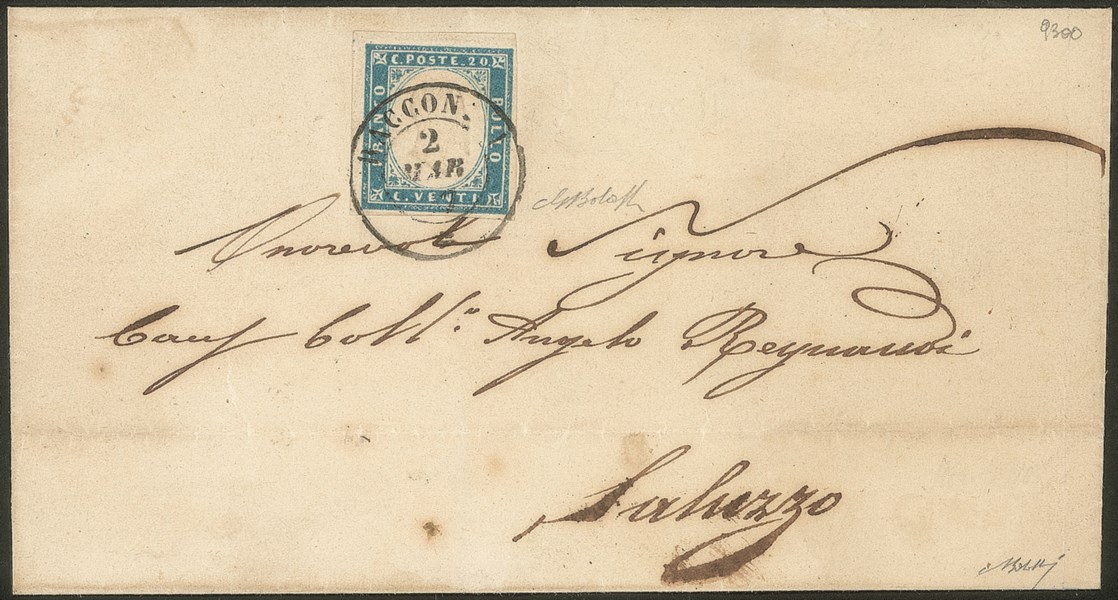 9300
C. POSTE. 20
FRANCO
BOLLO
C. VENTI
RACCON.
2
MAR
Onorevole Signore
Caus Coll.° Angelo Reynaudi
Saluzzo